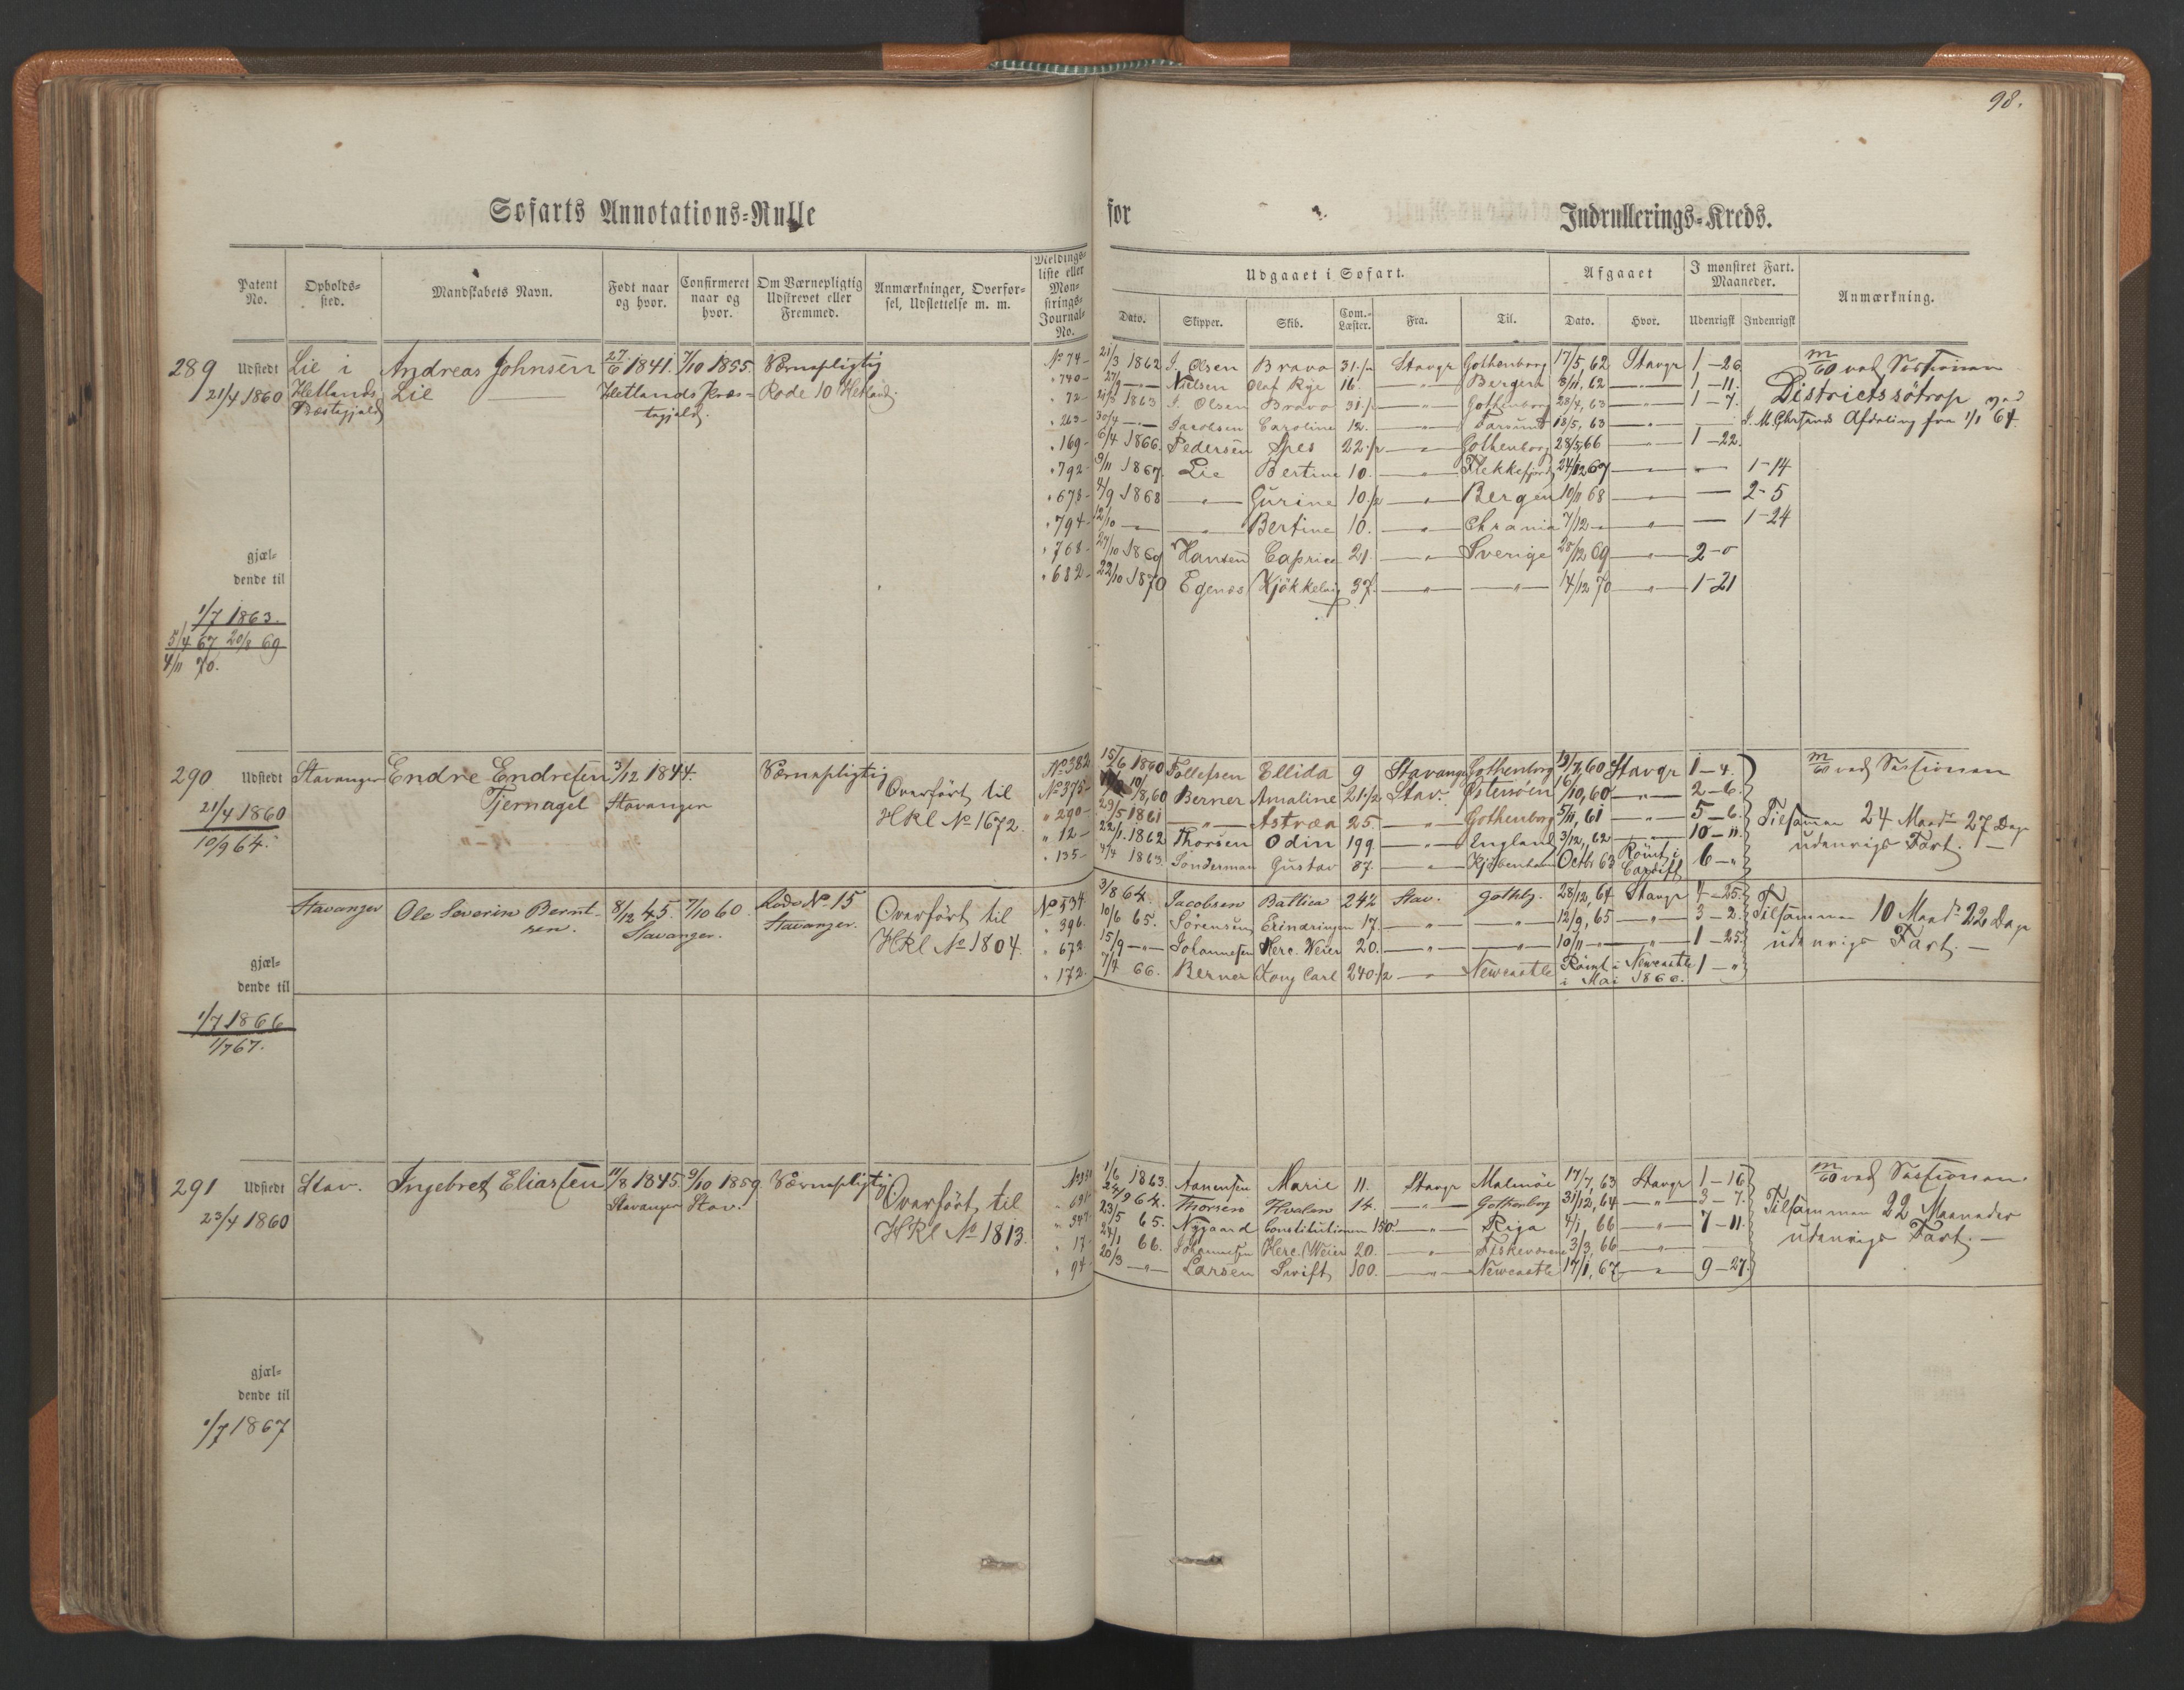 98.
Søfarts Annotations-Rulle for Indrullerings-Kreds.
Patent No.
Opholds-sted.
Mandskabets Navn.
Født naar og hvor.
Confirmeret naar og hvor.
Om Værnepligtig Udskrevet eller Fremmed.
Anmærkninger, Overførsel, Udslettelse m. m.
Meldingsliste eller Mønstrings-Journal-No.
Udgaaet i Søfart.
Dato. Skipper. Skib. Com.-Læster. Fra. Til.
Afgaaet
Dato. Hvor.
I mønstret Fart. Maaneder.
Udenrigsk Indenrigsk
Anmærkning.
289 Udstedt Lie i Andreas Johnsen 27/6 1841. 7/10 1855. Værnepligtig
21/4 1860 Hetlands Lie Hetlands Præs- Rode 10 Hetland.
Præstegjeld tegjeld.
No 74 21/3 1862 J. Olsen Bravo 31 1/2 Stavgr Gothenborg 17/5, 62 Stavgr 1-26
" 740 27/9 — Nielsen Olaf Rye 16. — " — Bergen 8/11, 62 — " — 1-11.
" 72 21/3 1863 J. Olsen Bravo 31 1/2 — " — Gothenborg 28/4, 63 — " — 1-7.
" 263 30/4 — Jacobsen Caroline 12. — " — Farsund 18/5, 63 — " —
" 169 6/4 1866. Pedersen Spes 22 1/2 — " — Gothenborg 28/5 66 — " — 1-22.
" 792 9/11 1867. Lie Bertine 10. — " — Flekkefjord 24/12 67 — " — — 1-14
" 678 4/9 1868 — " — Gurine 10 1/2 — " — Bergen 10/11 68 — " — — 2-5
" 794 12/10 — — " — Bertine 10. — " — Chrania 7/12 — — " — — 1-24
" 768 27/10 1869 Hansen Caprice 21. — " — Sverige 28/12 69 — " — 2-0
" 682 22/10 1870 Egenæs Kjökkelvig 37. — " — — " — 14/12 70 — " — 1-21
m/60 ved Sessionen
Districtssötrop ved
J. M. Chrsands Afdeling fra 1/1 64.
gjæl-
dende til
1/7 1863.
5/4 67 20/8 69
4/11 70.
290 Udstedt Stavanger Endre Endresen 3/12 1844. Værnepligtig Overført til
21/4 1860 Tjernagel Stavanger HRl No 1672.
10/9 64.
No 382 15/6 1860 Tollefsen Ellida 9 Stavanger Gothenborg 19/7, 60 Stavgr 1-4.
No 375 10/8, 60 Berner Amaline 21 1/2 Stav. Østersøen 6/10, 60 — " — 2-6.
" 290 29/5 1861 — " — Astræa 25. — " — Gothenborg 5/11, 61 — " — 5-6.
" 12 22/1. 1862 Thorsen Odin 199. — " — England 3/12, 62 — " — 10-11.
" 135 4/4 1863. Sonderman Gustav 87. — " — Kjöbenhavn Octbr 63 Römt i Cardiff 6-"
m/60 ved Sessionen
Tilsammen 24 Maander 27 Dage
udenrigs Fart. —
Stavanger Ole Severin Bernt- 8/12 45. 7/10 60. Rode No 15 Overført til
sen. Stavanger. Stavanger. HRl No 1804.
No 534 3/8 64. Jacobsen Baltica 242 Stav. Gothbg. 28/12, 64 Stavgr 4-25.
" 396. 10/6 65. Sörensen Erindringen 17. — " — — " — 12/9, 65 — " — 3-2.
" 672 15/9 — " — Johannesen Herc. Weier 20. — " — — " — 10/11 — " — — " — 1-25.
" 172. 7/4 66. Berner Kong Carl 240 1/2 — " — Newcastle Römt i Newcastle 1-"
i Mai 1866.
Tilsammen 10 Maandr 22 Dage
udenrigs Fart. —
gjæl-
dende til
1/7 1866
1/7 67.
291 Udstedt Stav. Ingebret Eliassen 11/8 1845 9/10 1859 Værnepligtig Overført til
23/4 1860 Stavanger Stav. HRl No 1813.
1/6 1863. Aanensen Marie 11. Stavgr Malmöe 17/7, 63 Stavgr 1-16
24/9 64. Thorsen Hvalen 14. — " — Gothenborg 31/12, 64 — " — 3-7.
" 347 23/5 65. Nygaard Constitutionen 150. — " — Riga 4/1, 66 — " — 7-11.
" 17 24/1 66. Johannesen Herc. Weier 20. — " — Fiskeværene 3/3, 66 — " — —
" 94 20/3 — " — Larsen Swift 100. — " — Newcastle 17/1, 67 — " — 9-27.
m/60 ved Sessionen.
Tilsammen 22 Maaneder
udenrigs Fart. —
gjæl-
dende til
1/7 1867